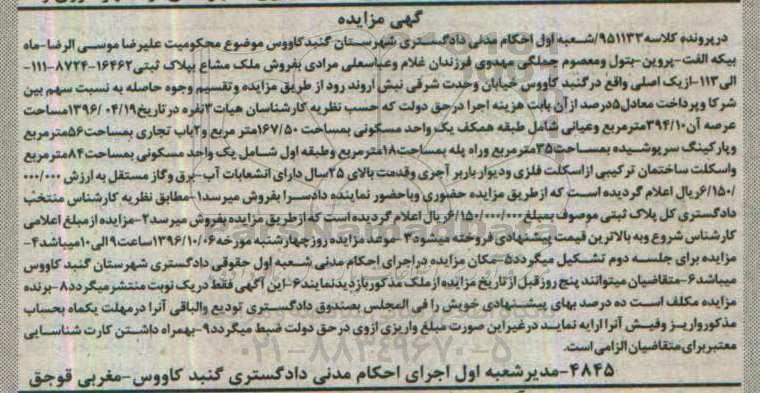 گهی مزایده
درپرونده کلاسه۹۵۱۱۳۳/شعبه اول احکام مدنی دادگستری شهرستان گنبدکاووس موضوع محکومیت علیرضا موسی الرضا-ماه
بیکه الفت-پروین-بتول ومعصوم جملگی مهدوی فرزندان غلام وعباسعلی مرادی بفروش ملک مشاع بپلاک ثبتی۱۶۴۶۲-۸۷۲۴-۱۱۱-
الی۱۱۳-ازیک اصلی واقع درگنبد کاووس خیابان وحدت شرقی نبش اروند رود از طریق مزایده وتقسیم وجوه حاصله به نسبت سهم بین
شرکا وپرداخت معادل۵درصد ازآن بابت هزینه اجرا درحق دولت که حسب نظریه کارشناسان هیات۳نفره در تاریخ۱۳۹۶/۰۴/۱۹مساحت
عرصه آن۳۹۴/۱۰مترمربع وعیانی شامل طبقه همکف یک واحد مسکونی بمساحت ۱۶۷/۵۰متر مربع و۲باب تجاری بمساحت۵۶مترمربع
وپارکینگ سرپوشیده بمساحت۳۵مترمربع وراه پله بمساحت۱۸مترمربع وطبقه اول شامل یک واحد مسکونی بمساحت۸۴مترمربع
واسکلت ساختمان ترکیبی ازاسکلت فلزی ودیوار باربر آجری وقدمت بالای ۲۵سال دارای انشعابات آب-برق وگاز مستقل به ارزش ۰۰۰/۰۰۰
/۶/۱۵۰ریال اعلام گردیده است که ازطریق مزایده حضوری وباحضور نماینده دادسرا بفروش میرسد۱-مطابق نظریه کارشناس منتخب
دادگستری کل پلاک ثبتی موصوف بمبلغ۶/۱۵۰/۰۰۰/۰۰۰ریال اعلام گردیده است که ازطریق مزایده بفروش میرسد۲-مزایده ازمبلغ اعلامی
کارشناس شروع وبه بالاترین قیمت پیشنهادی فروخته میشود۳-موعد مزایده روزچهارشنبه مورخه۱۳۹۶/۱۰/۰۶ساعت۹الی۱۰میباشد۴-
مزایده برای جلسه دوم تشکیل میگردد۵-مکان مزایده دراجرای احکام مدنی شعبه اول حقوقی دادگستری شهرستان گنبد کاووس
میباشد۶-متقاضیان میتوانند پنج روزقبل ازتاریخ مزایده ازملک مذکوربازدیدنمایند۶-این آگهی فقط دریک نوبت منتشرمیگردد۸-برنده
مزایده مکلف است ده درصد بهای پیشنهادی خویش را فی المجلس بصندوق دادگستری تودیع والباقی آنرا درمهلت یکماه بحساب
مذکورواریز وفیش آنرا ارایه نماید درغیراین صورت مبلغ واریزی ازوی درحق دولت ضبط میگردد۹-بهمراه داشتن کارت شناسایی
معتبربرای متقاضیان الزامی است.
۴۸۴۵-مدیرشعبه اول اجرای احکام مدنی دادگستری گنبد کاووس-مغربی قوجق
ParsNamadData
۰۲۱-۸۸۳۴۹۶۷۰-۵